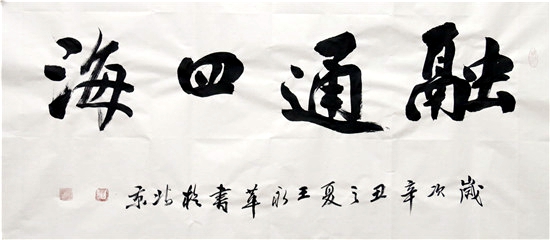 融通四海
歲次辛丑之夏王永革書於北京